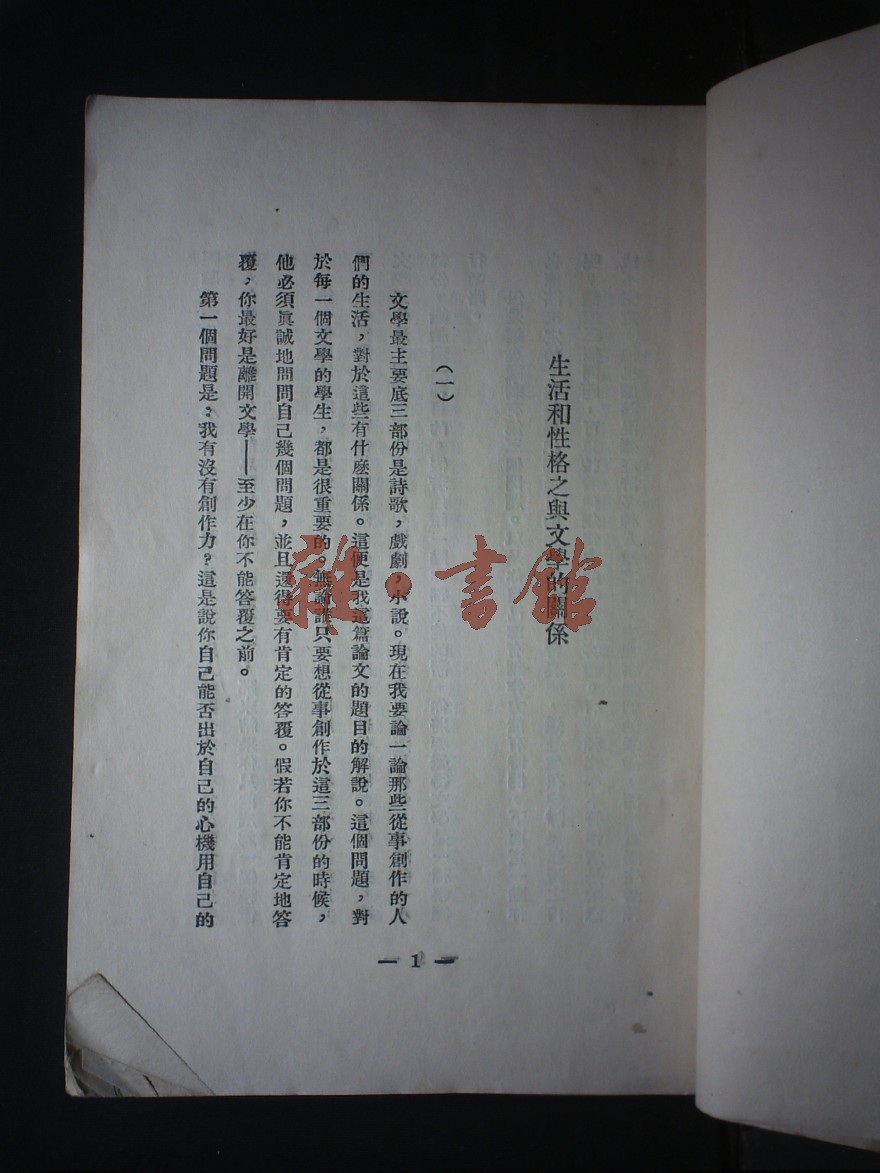 生活和性格之與文學的關係
(一)
文學最主要底三部份是詩歌，戲劇，小說。現在我要論一論那些從事創作的人
們的生活，對於這些有什麽關係。這便是我這篇論文的題目的解說。這個問題，對
於每一個文學的學生，都是很重要的。無論誰只要想從事創作於這三部份的時候，
他必須眞誠地問問自己幾個問題，並且還得要有肯定的答覆。假若你不能肯定地答
覆，你最好是離開文學——至少在你不能答覆之前。
第一個問題是：我有沒有創作力？這是說你自己能否出於自己的心機用自己的
— 1 —
雜·書館